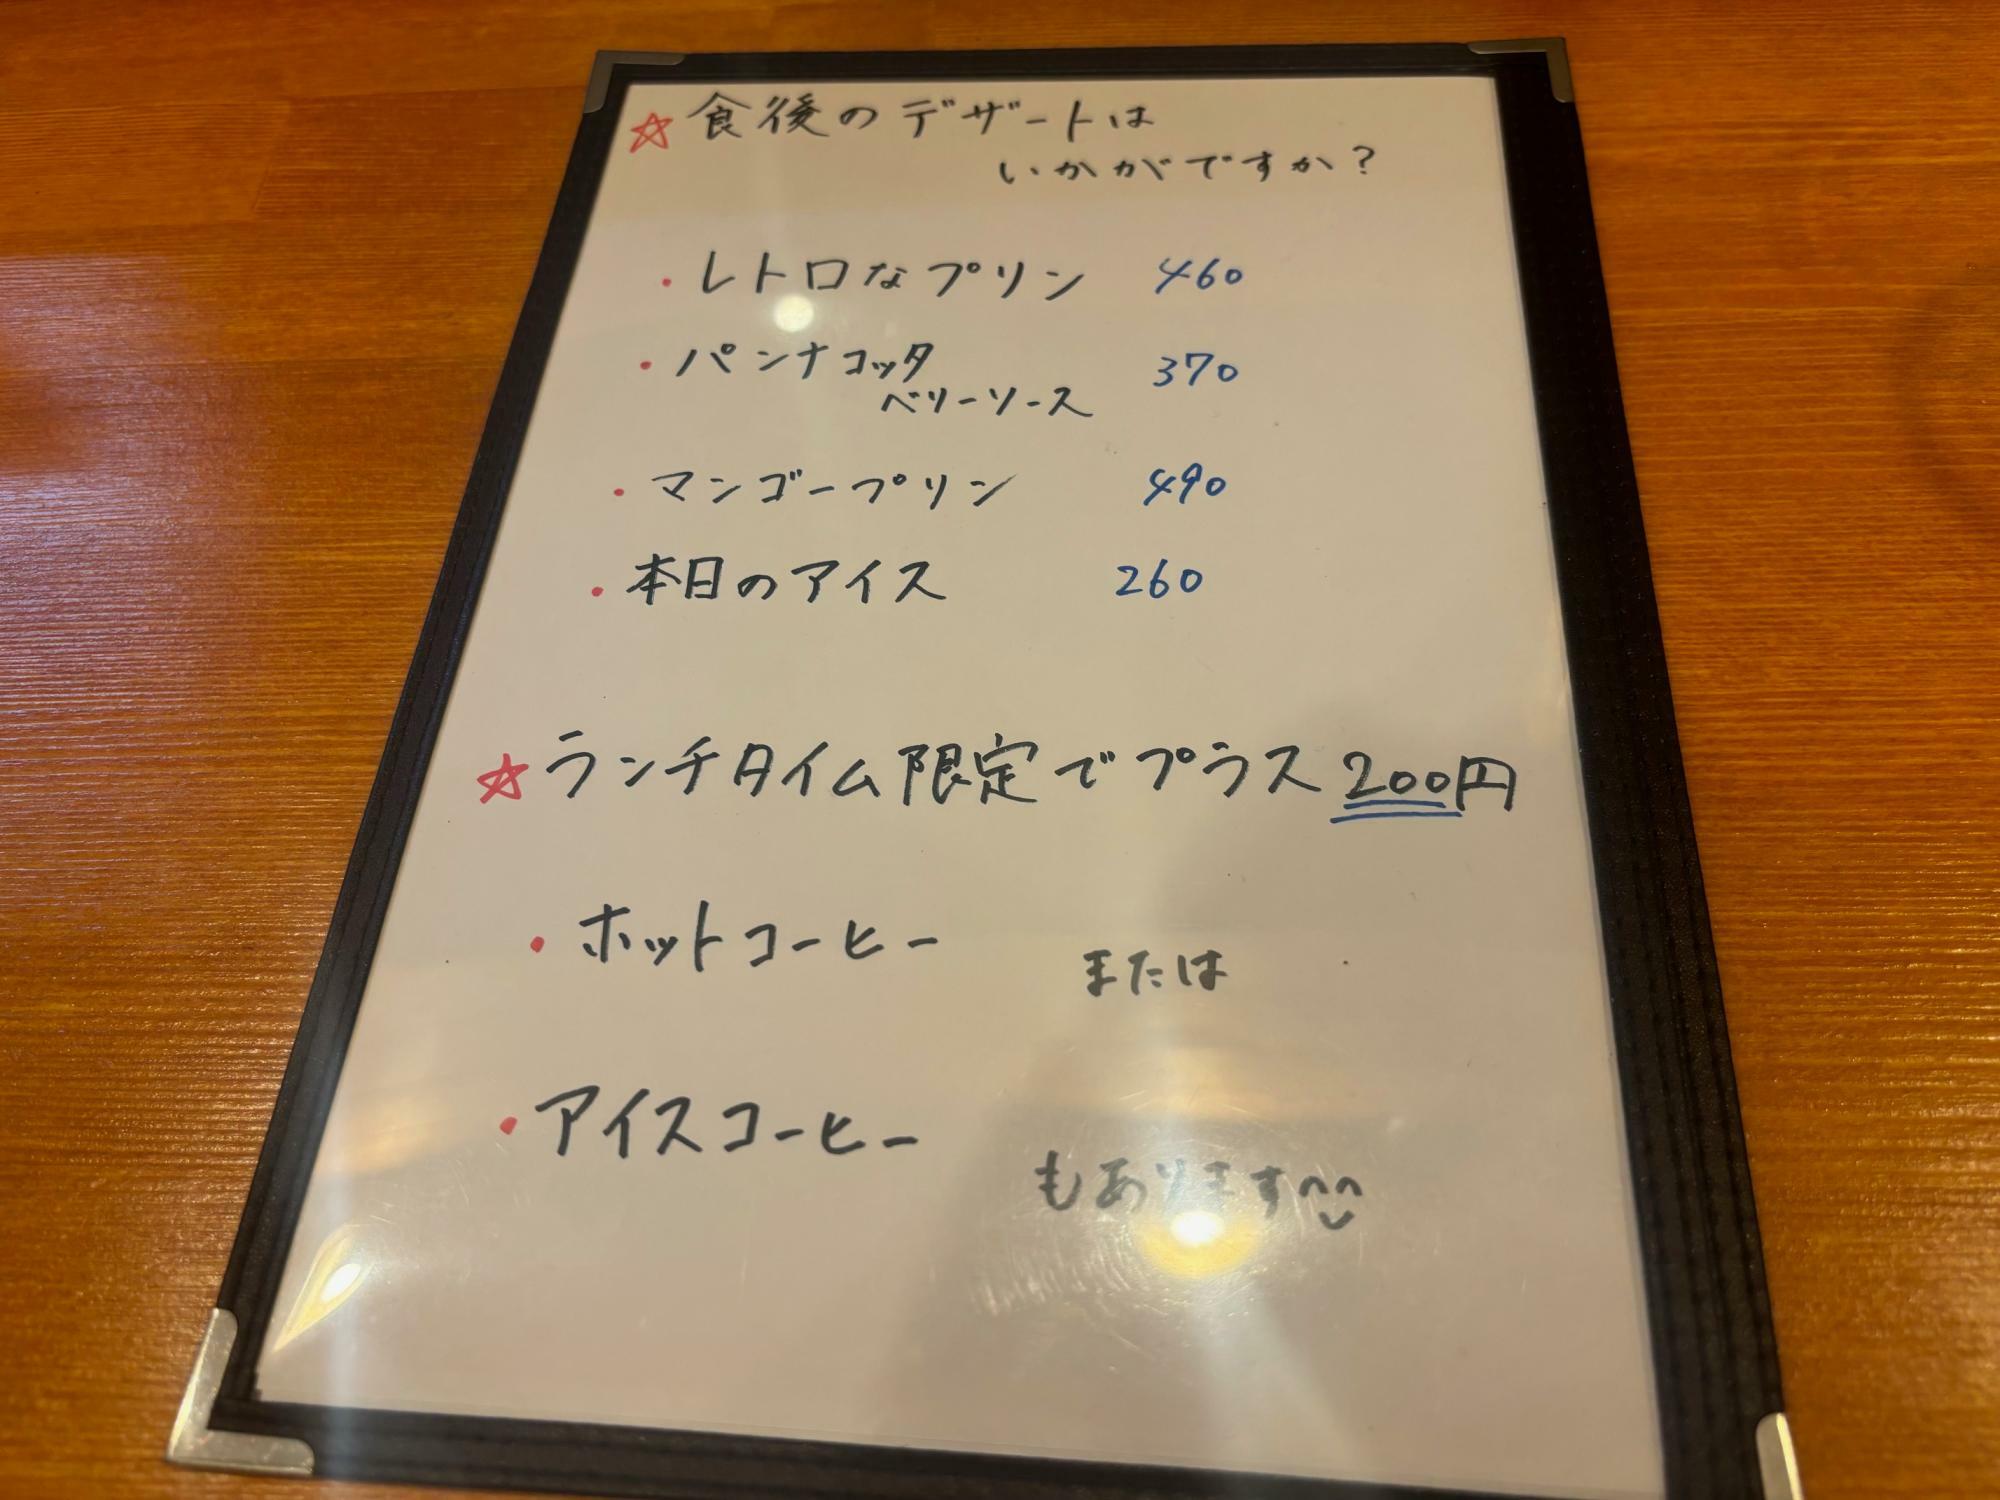 ☆ 食後のデザートは
いかがですか？
・レトロなプリン 460
・パンナコッタ 370
ベリーソース
・マンゴープリン 490
・本日のアイス 260
☆ ランチタイム限定でプラス200円
・ホットコーヒー または
・アイスコーヒー
もあります^^